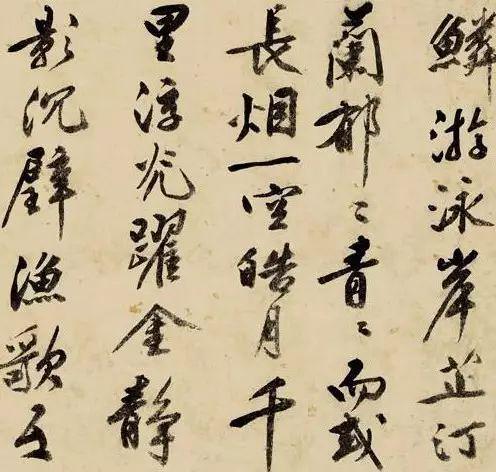 鱗游泳岸芷汀
蘭郁〻青〻而或
長烟一空皓月千
里浮光躍金静
影沉璧漁歌互